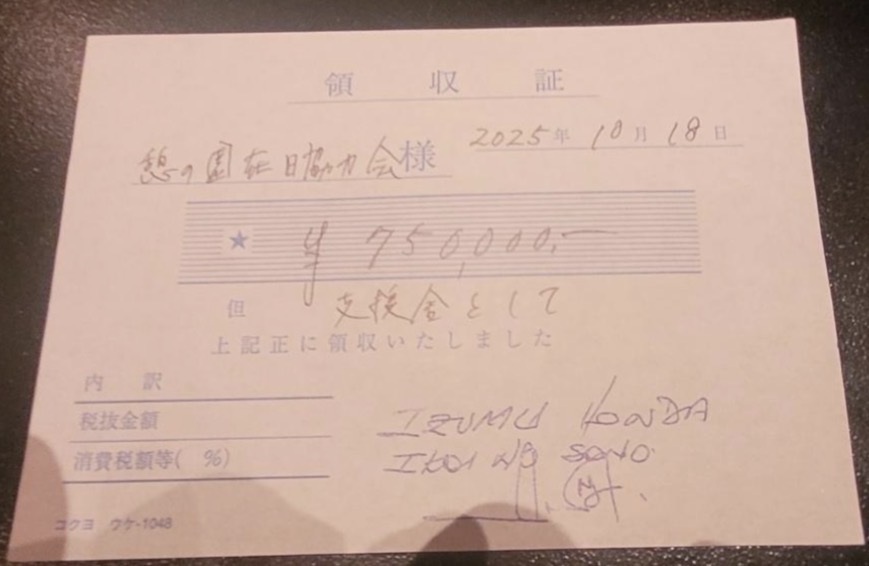 領収証
2025年10月18日
憩の園在日協力会様
★ ¥750,000.―
但 支援金として
上記正に領収いたしました
内訳
税抜金額
消費税額等( %)
IZUMU HONDA
IKOI NO SONO
コクヨ ウケ-1048